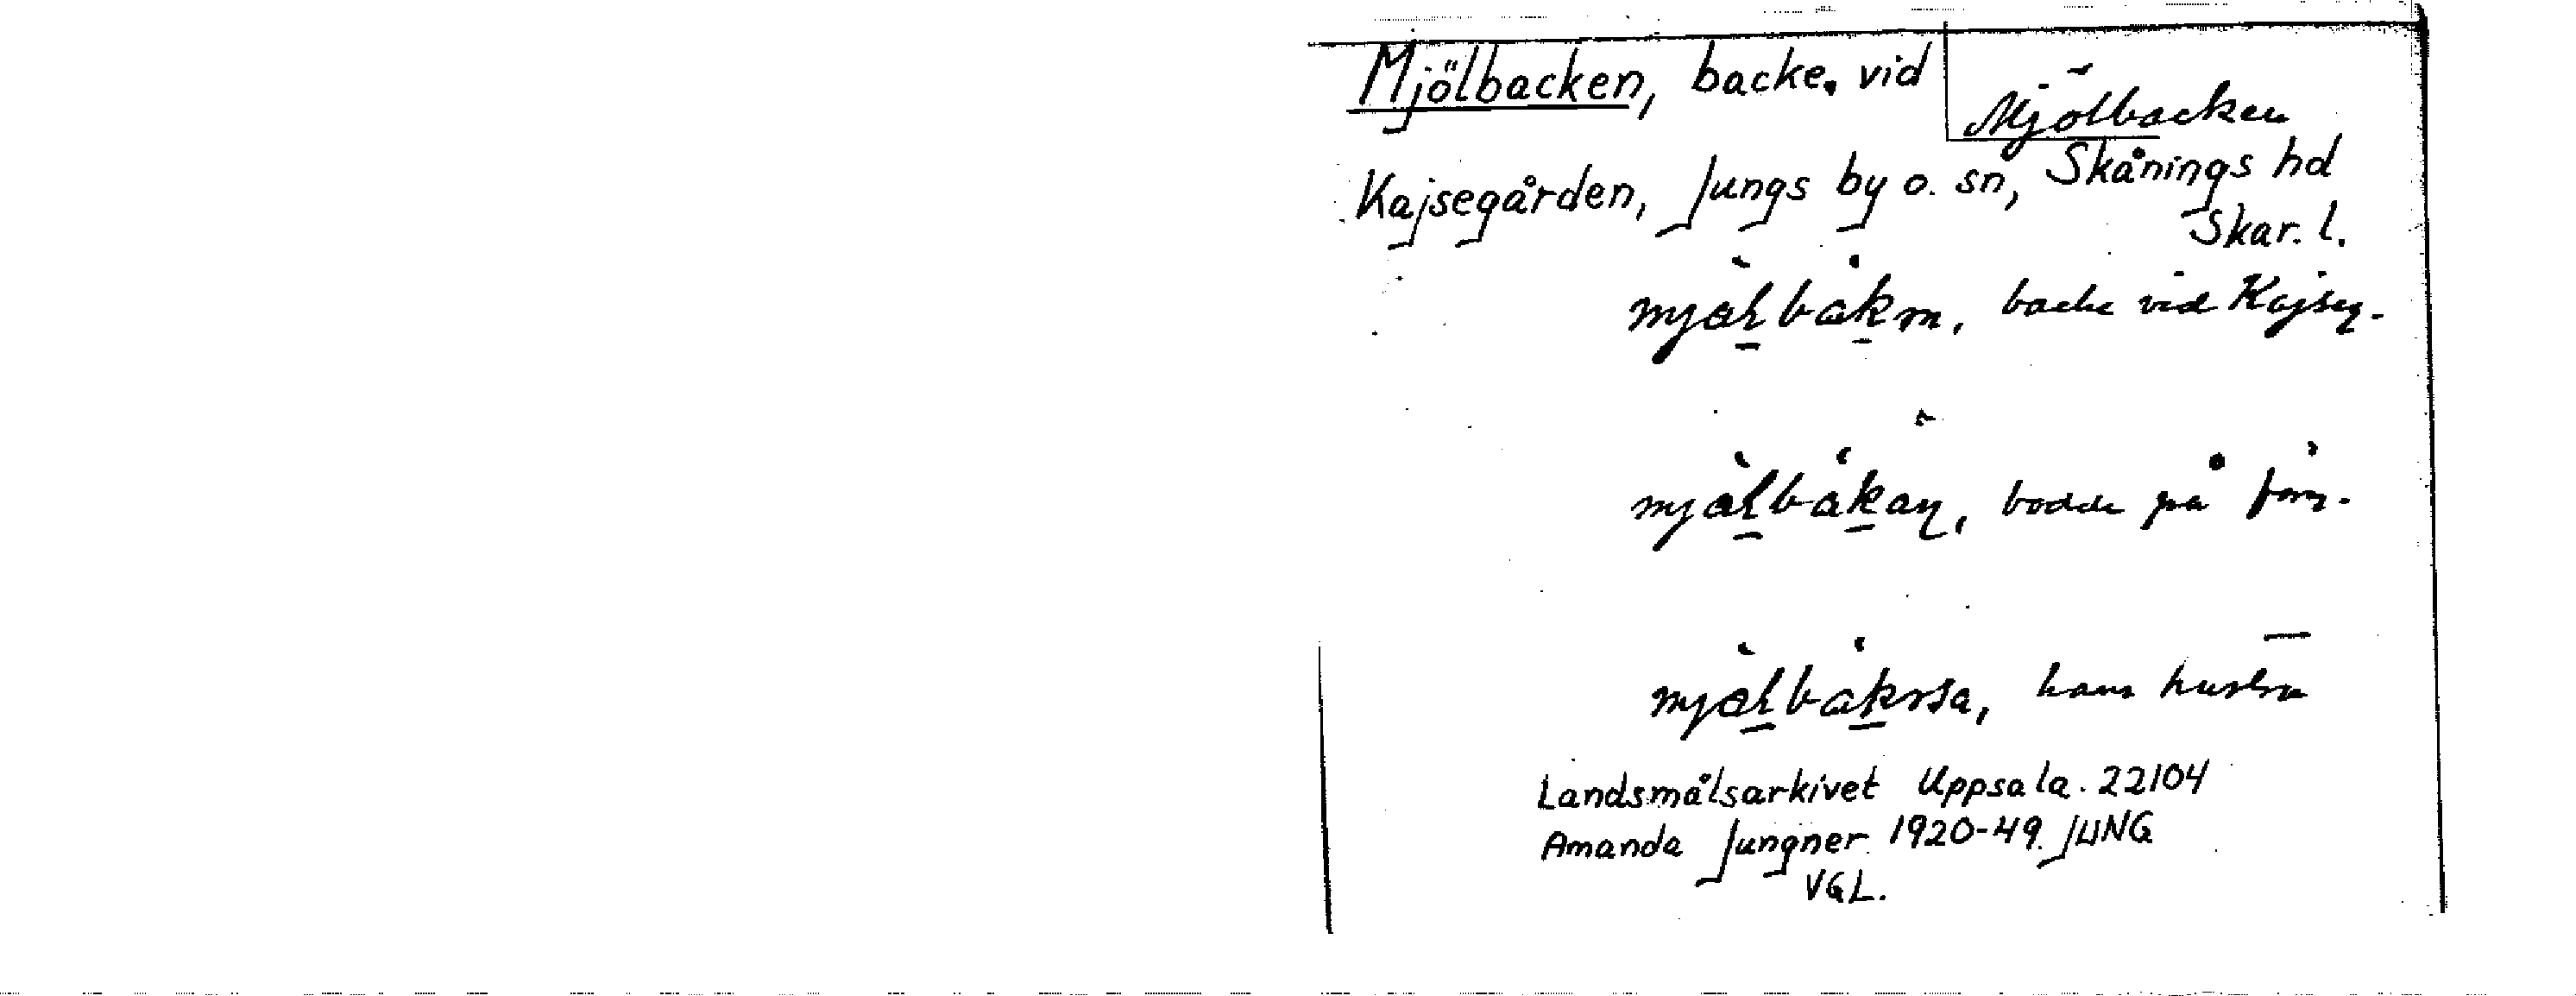 Mjölbacken, backe. vid
Mjölbacken
Kajsegården, Jungs by o. sn, Skånings hd
Skar. l.
backe vid Kajseg.
bodde på
hans hustru
Landsmålsarkivet Uppsala. 22104
Amanda Jungner 1920-49. JUNG
VGL.